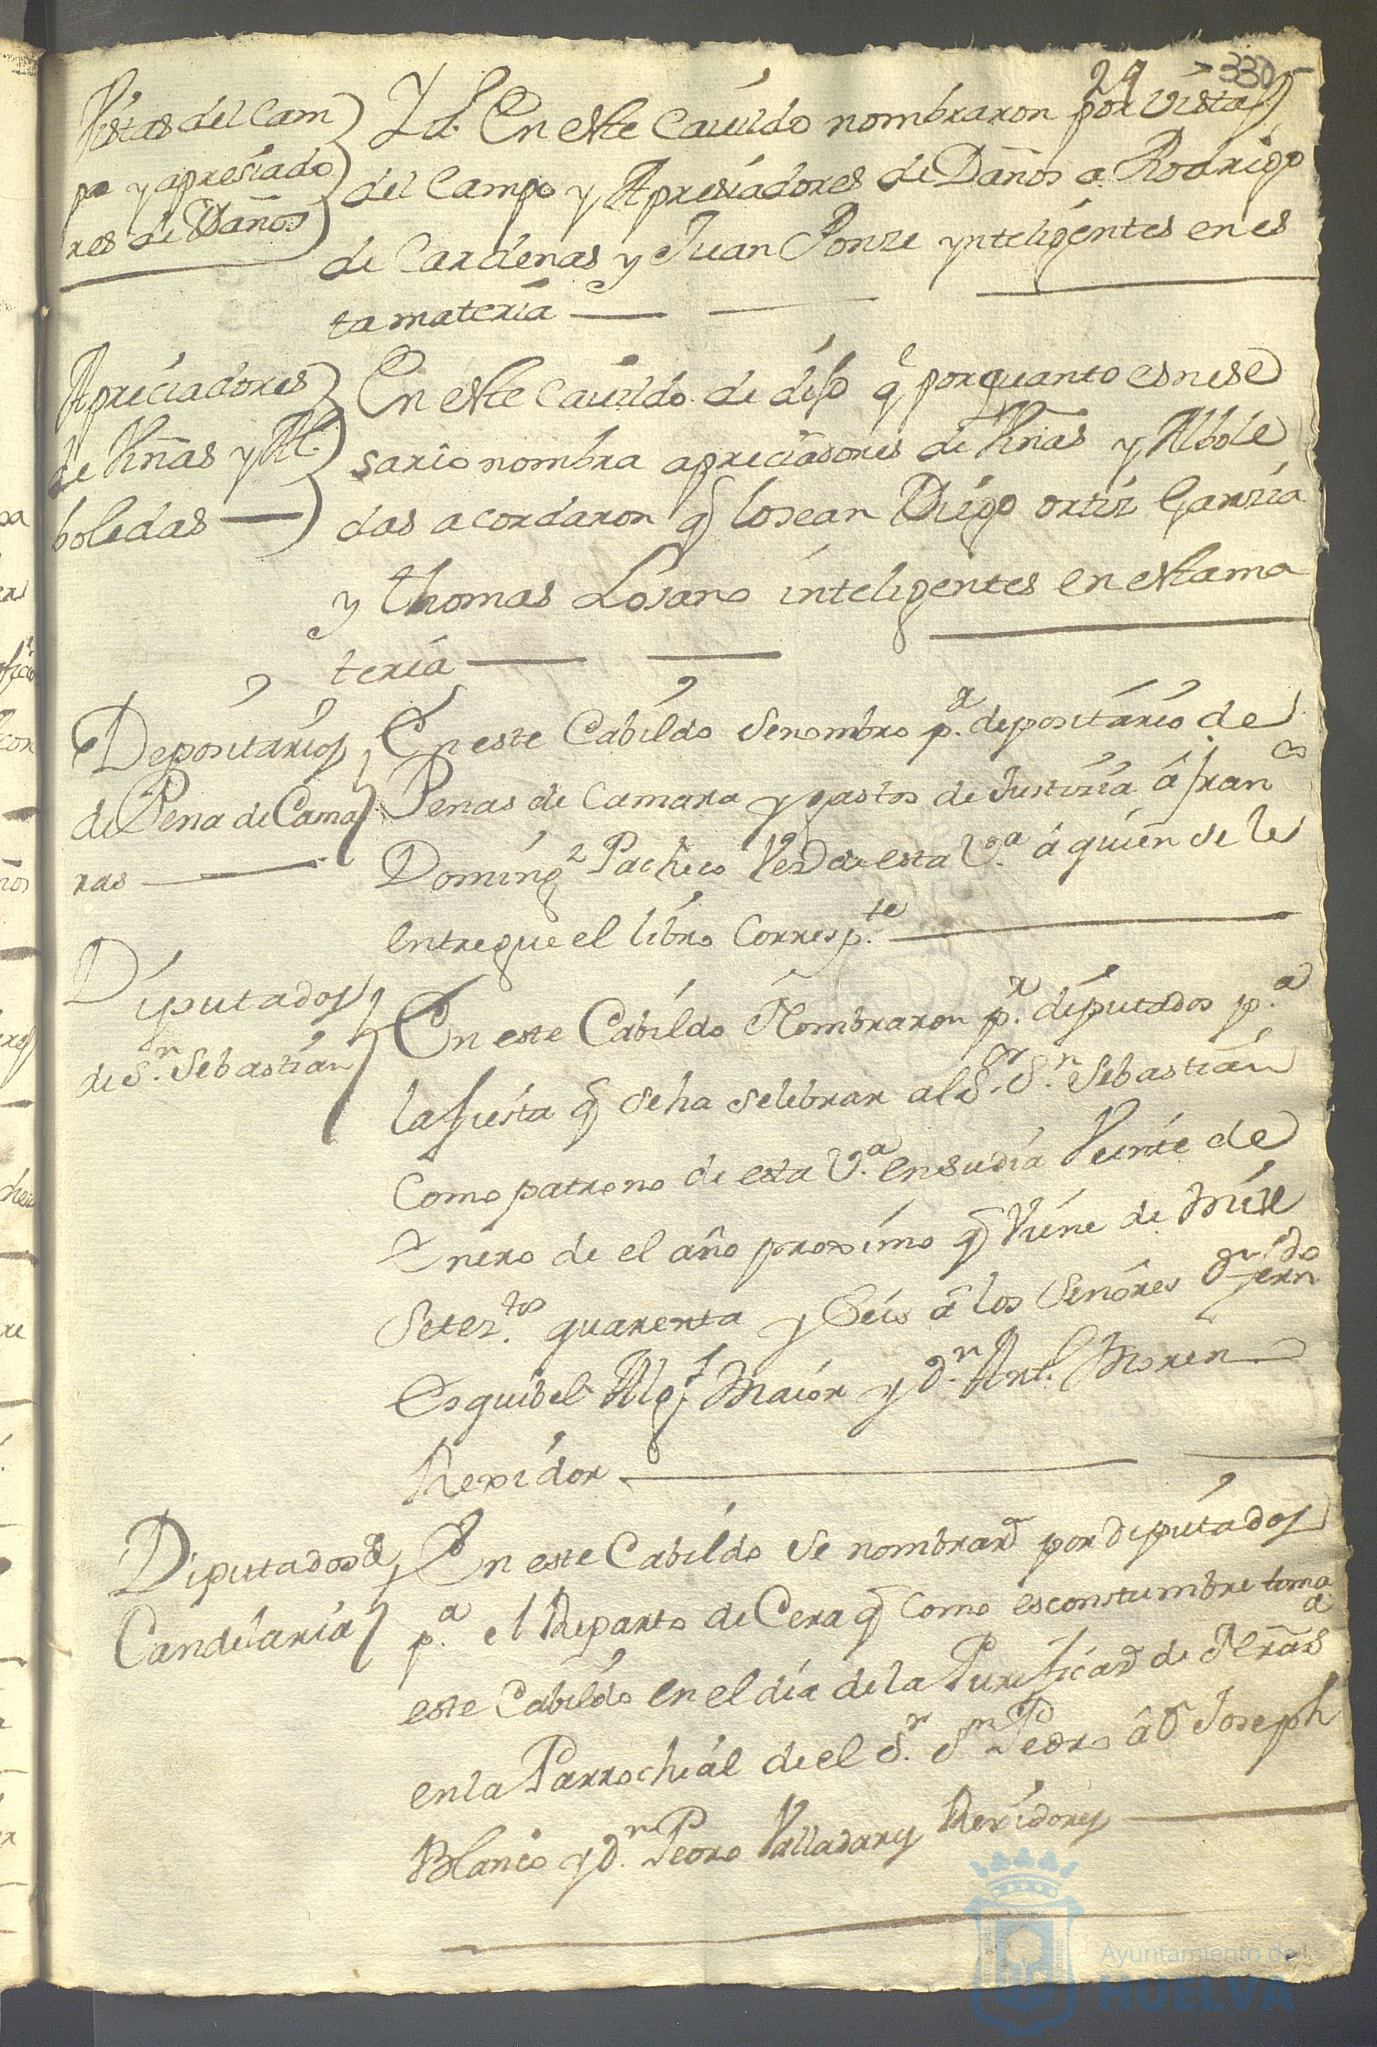 29 330
Vistas del Cam
po y apresiado
res de Daños
Yd. En este Cavildo nombraron por vistas
del Campo y Apresiadores de Daños a Rodrigo
de Cardenas y Juan Ponze ynteligentes en es
ta materia
Apreciadores
de Viñas y Al
boledas
En este Cavildo de dijo q.e por quanto es nese
sario nombra apreciadores de Viñas y Albole
das acordaron q lo sean Diego ortiz Garzia
y Thomas Losano inteligentes en esta ma
teria
Depositarios
de Pena de Cama
ras
En este Cabildo se nombro p.a depositario de
Penas de Camara y gastos de Justizia â fran.co
Doming.z Pacheco Vez.o de esta V.a â quien se le
entregue el libro Corresp.te
Diputados
de S.n Sebastian
En este Cabildo Nombraron p.r diputados p.a
la fiesta q se ha selebrar al S.r S.n Sebastian
Como patrono de esta V.a en su dia Veinte de
Enero de el año proximo q Viene de Mill
Setez.tos quarenta y Seis â los Señores D.n fern.do
Esquibel Alg.l Maior y D.n Ant.o Moreno
Rexidor
Diputados de
Candelaria
En este Cabildo se nombraron por diputados
p.a el Reparto de Cera q Como es constumbre toma
este Cabildo en el dia de la Purificaon de Nra S.a
en la Parrochial de el S.r S.n Pedro â D.n Joseph
Blanco y D.n Pedro Valladares Rexidores
Ayuntamiento de
HUELVA